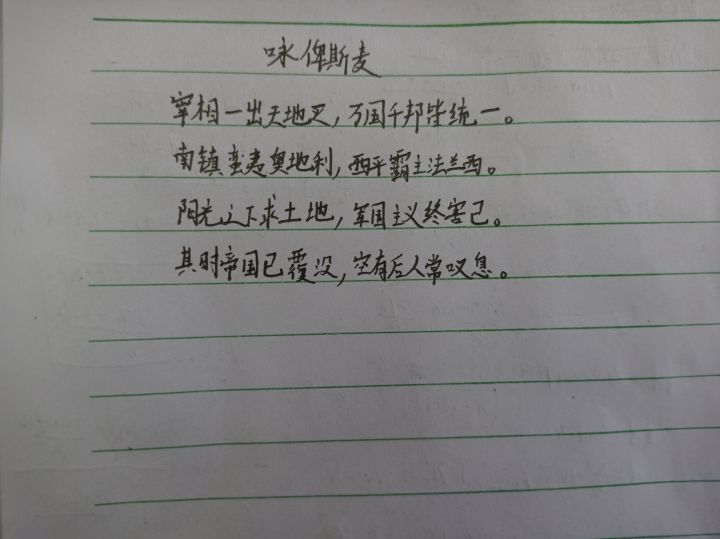 咏俾斯麦
宰相一出天地叉，万国千邦皆统一。
南镇蛮夷奥地利，西平霸主法兰西。
阳光之下求土地，军国主义终害己。
其时帝国已覆没，空有后人常叹息。